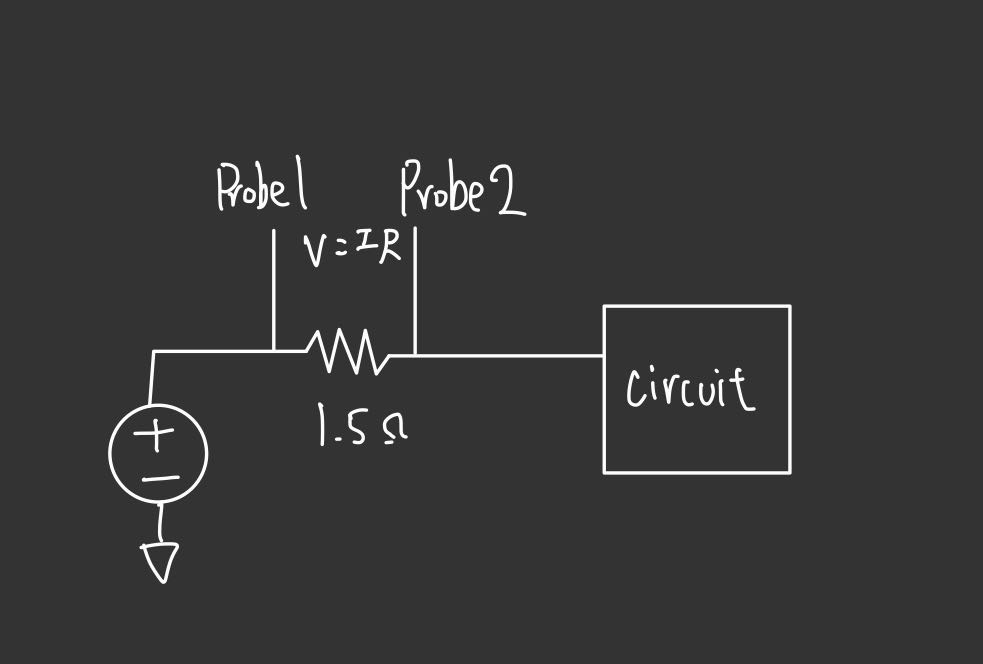 Probe1
Probe2
V=IR
1.5Ω
+
−
circuit